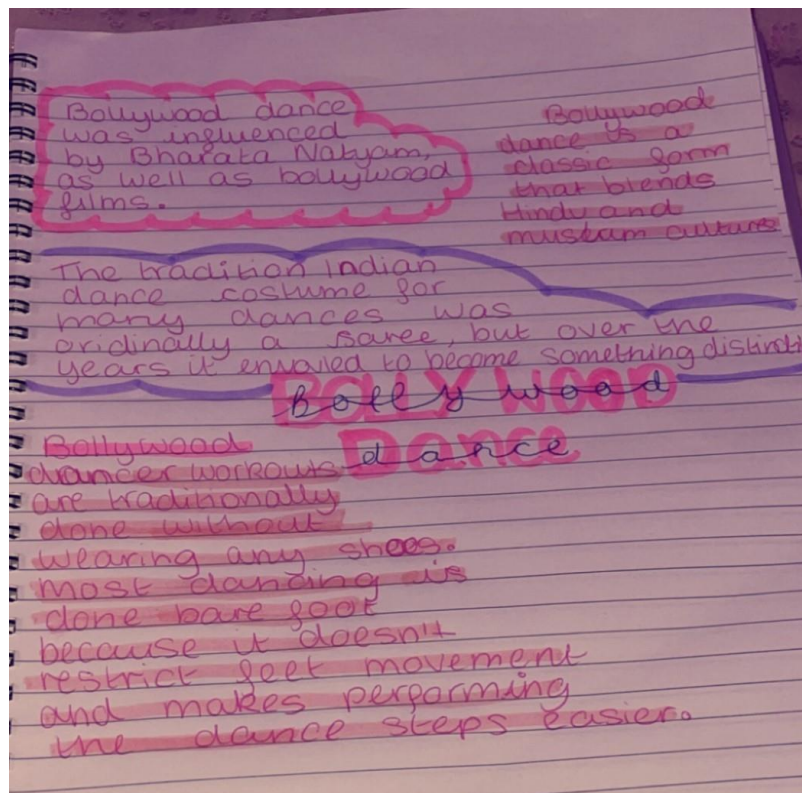 Bollywood dance
was influenced
by Bharata Natyam,
as well as bollywood
films.
Bollywood
dance is a
classic form
that blends
Hindu and
muslam culture
The tradition Indian
dance costume for
many dances was
oridinally a saree, but over the
years it envoled to become something distinct
BOLLYWOOD
Dance
Bollywood
drancer workouts
are traditionally
done without
wearing any shoes.
most dancing is
done bare foot
because it doesn't
restrict feet movement
and makes performing
the dance steps easier.